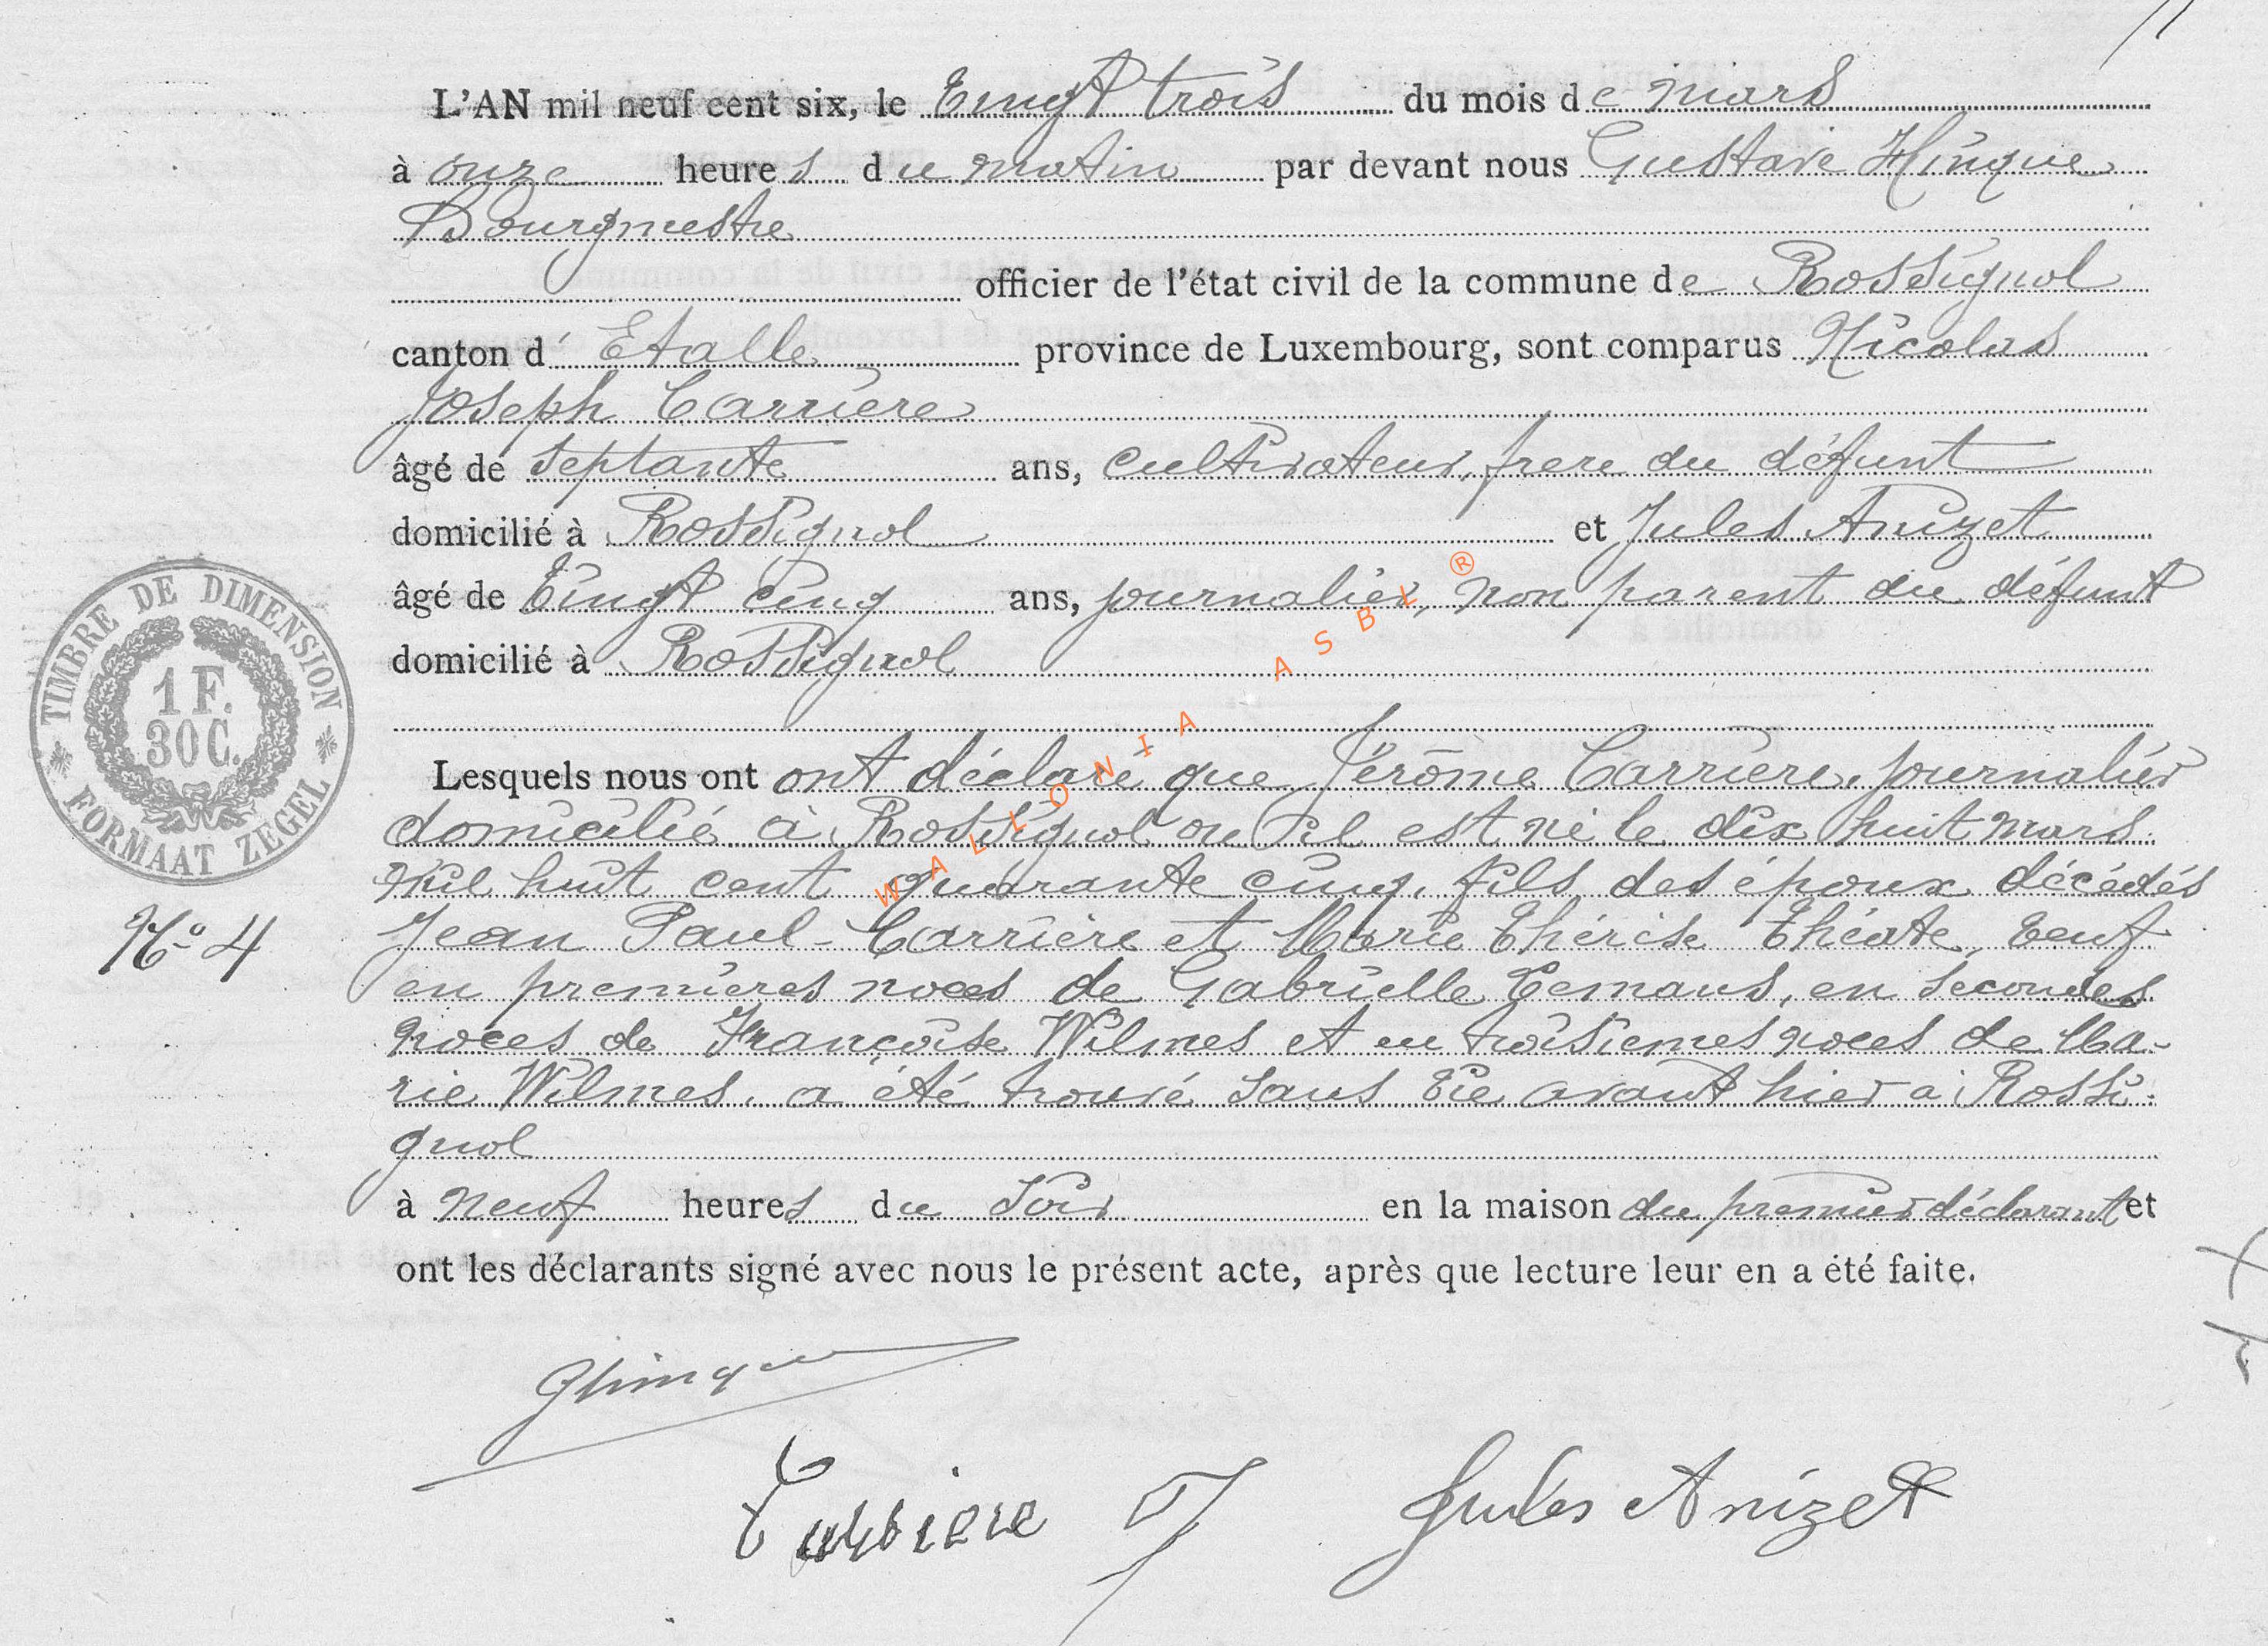 L'AN mil neuf cent six, le Vingt trois du mois de mars
à onze heures du matin par devant nous Gustave Hinque
Bourgmestre
officier de l'état civil de la commune de Rossignol
canton d' Etalle province de Luxembourg, sont comparus Nicolas
Joseph Carrière
âgé de septante ans, cultivateur, frere du défunt
domicilié à Rossignol et Jules Anizet
âgé de Vingt cinq ans, journalier, non parent du défunt
domicilié à Rossignol
Lesquels nous ont ont déclaré que Jérôme Carrière, journalier
domicilié à Rossignol ou il est né le dix huit mars
mil huit cent quarante cinq, fils des époux décédés
Jean Paul Carrière et Marie Thérèse Théate, Veuf
en premières noces de Gabrielle Temans, en secondes
noces de Françoise Wilmes et en troisiemes noces de Ma-
rie Wilmes, a été trouvé sans vie avant hier à Rossi-
gnol
à neuf heures du soir en la maison du premier déclarant et
ont les déclarants signé avec nous le présent acte, après que lecture leur en a été faite.
TIMBRE DE DIMENSION
1 F.
30 C.
FORMAAT ZEGEL
No 4
WALLONIA ASBL ®
GHinque
Carriere J
Jules Anizet